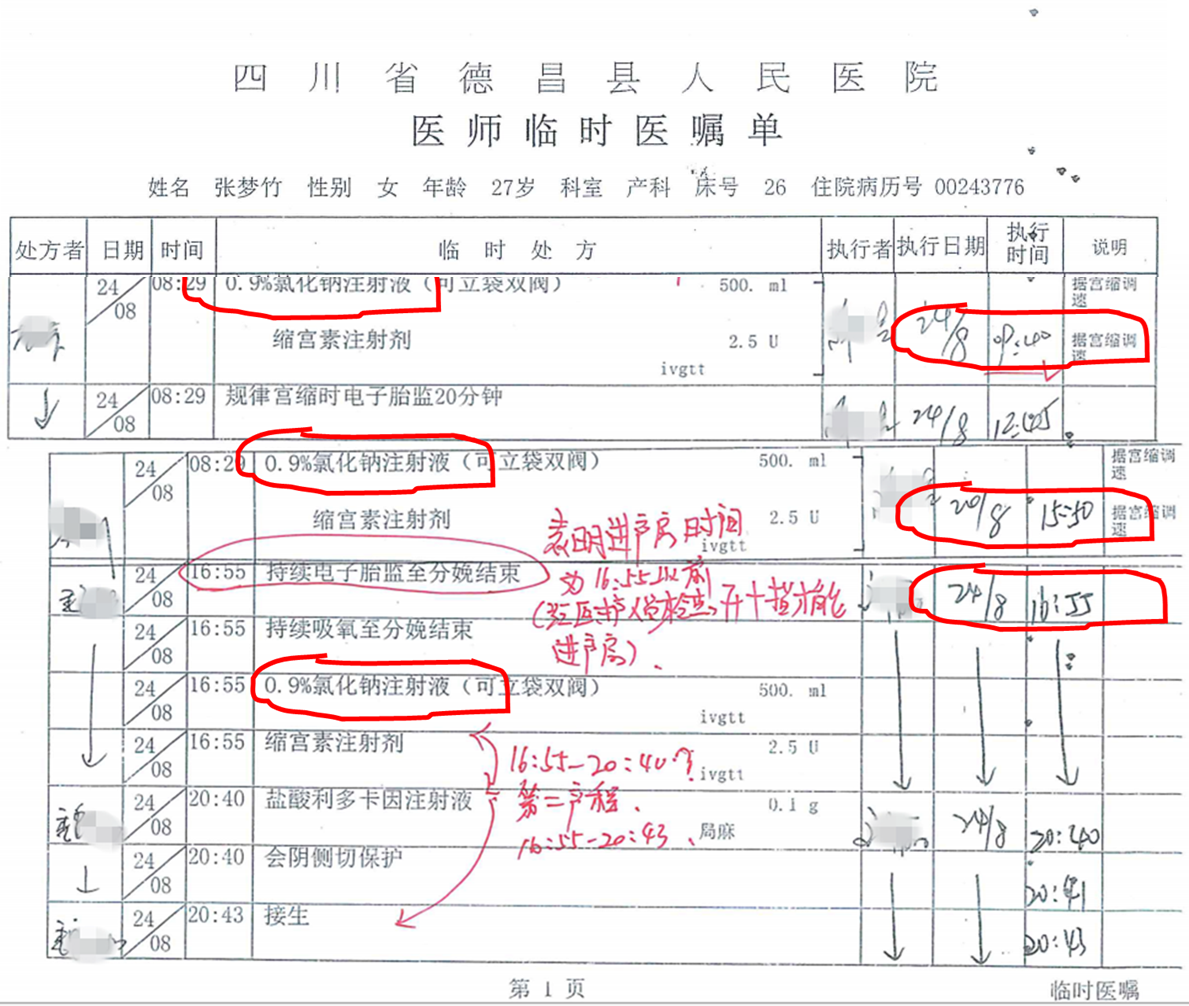 四川省德昌县人民医院
医师临时医嘱单
姓名 张梦竹 性别 女 年龄 27岁 科室 产科 床号 26 住院病历号 00243776
处方者 日期 时间 临时处方 执行者 执行日期 执行时间 说明
24/08 08:29 0.9%氯化钠注射液（可立袋双阀） 500. ml 据宫缩调速
缩宫素注射剂 2.5 U 24/8 09:40 据宫缩调速
ivgtt
24/08 08:29 规律宫缩时电子胎监20分钟 24/8 12:45
24/08 08:29 0.9%氯化钠注射液（可立袋双阀） 500. ml 据宫缩调速
缩宫素注射剂 2.5 U 20/8 15:50 据宫缩调速
ivgtt
表明进产房时间
为16:55以前
开十指才能
进产房）.
24/08 16:55 持续电子胎监至分娩结束 24/8 16:55
24/08 16:55 持续吸氧至分娩结束
24/08 16:55 0.9%氯化钠注射液（可立袋双阀） 500. ml
ivgtt
24/08 16:55 缩宫素注射剂 2.5 U
ivgtt
16:55-20:40?
第二产程.
16:55-20:43.
24/08 20:40 盐酸利多卡因注射液 0.1 g 24/8 20:40
局麻
24/08 20:40 会阴侧切保护 20:41
24/08 20:43 接生 20:43
第 1 页 临时医嘱